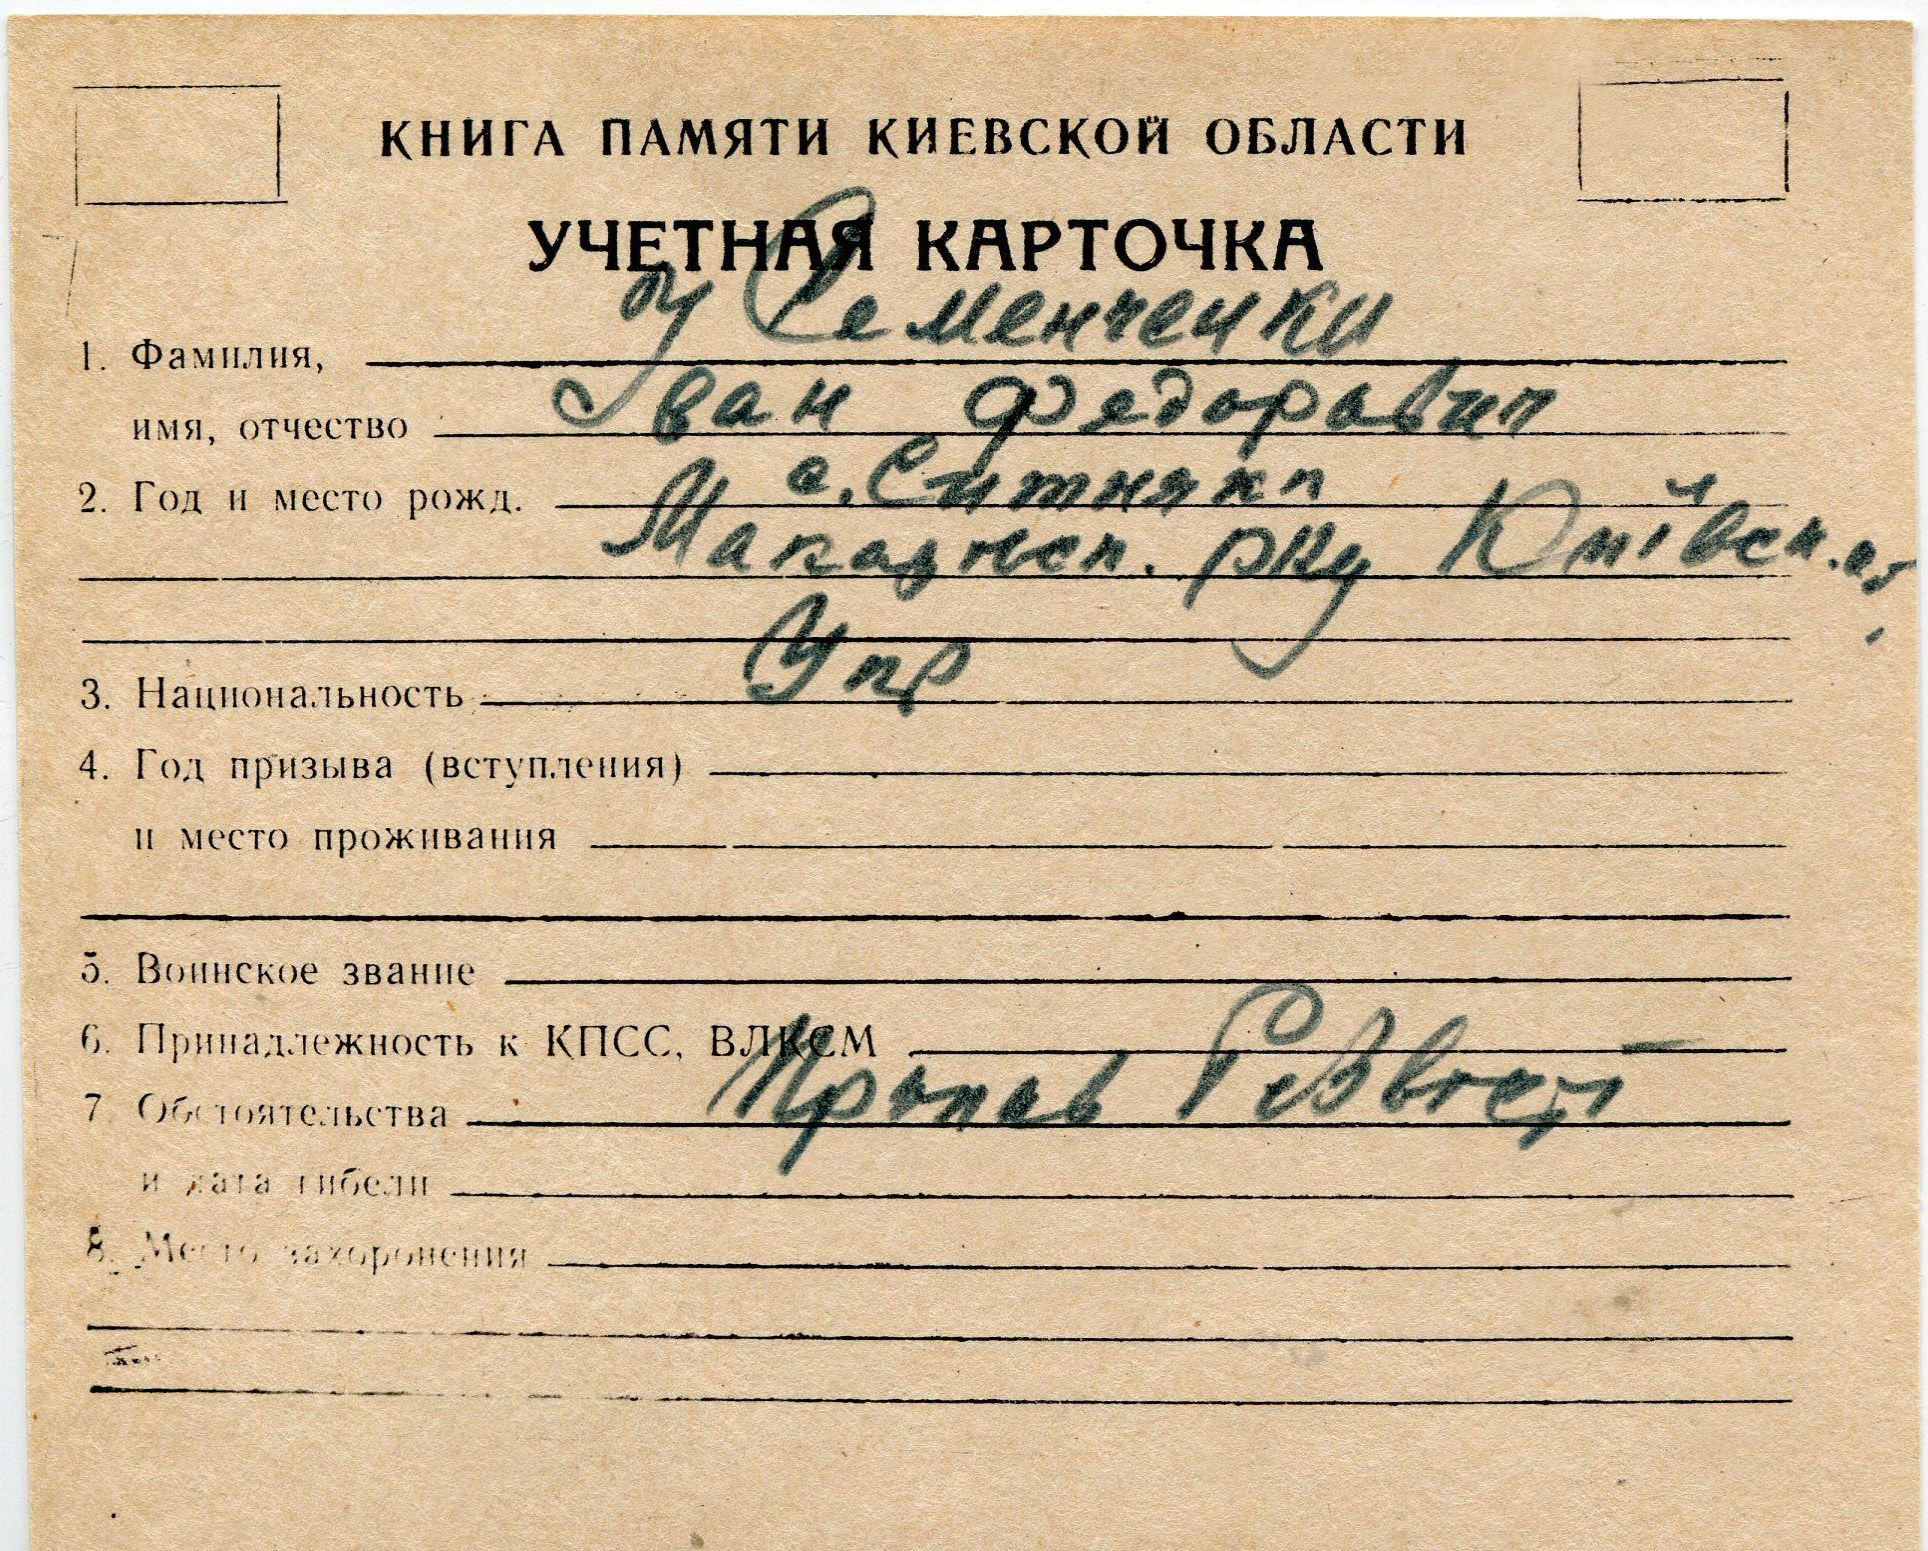 КНИГА ПАМЯТИ КИЕВСКОЙ ОБЛАСТИ
УЧЕТНАЯ КАРТОЧКА
1. Фамилия,
имя, отчество Іван Федорович
2. Год и место рожд. с. Ситняки
Київськ. об
3. Национальность Укр
4. Год призыва (вступления)
и место проживания
5. Воинское звание
6. Принадлежность к КПСС, ВЛКСМ
7. Обстоятельства
и дата гибели
8. Место захоронения